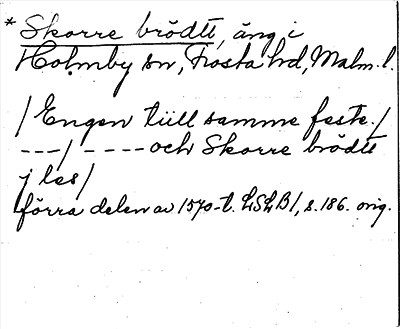 * Skorre brödtt, äng i
Holmby sn, Frosta hd, Malm. l.
/Engen tiill samme feste./
---/ ---- och Skorre brödtt
j les/
förra delen av 1570-t. LSLB1, s. 186. orig.